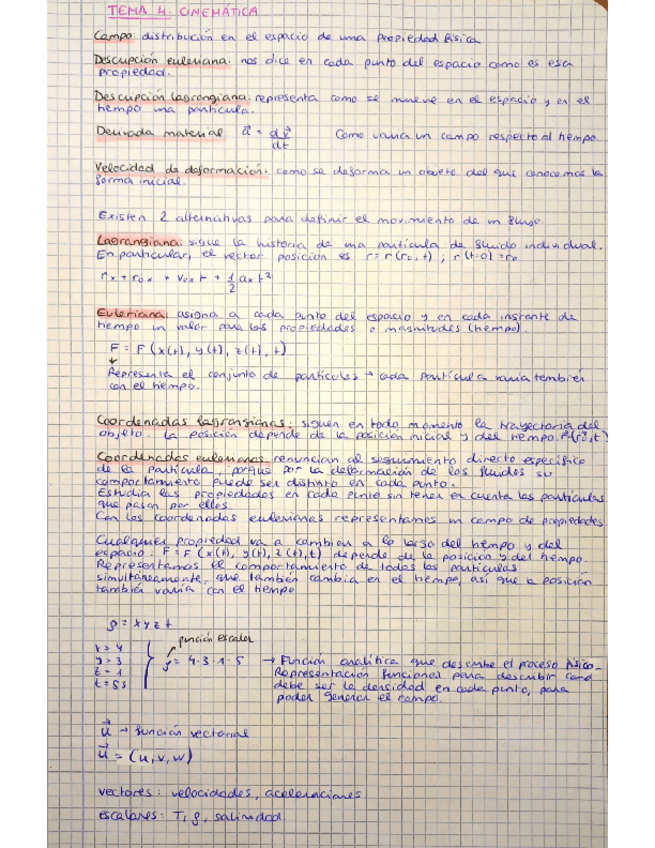 TEMA 4. CINEMÁTICA
Campo: distribución en el espacio de una propiedad física
Descripción euleriana: nos dice en cada punto del espacio como es esa
propiedad.
Descripción lagrangiana: representa como se mueve en el espacio y en el
tiempo una partícula.
Derivada material a⃗ = dv⃗/dt Como varía un campo respecto al tiempo
Velocidad de deformación: como se deforma un objeto del que conocemos la
forma inicial.
Existen 2 alternativas para definir el movimiento de un fluido.
Lagrangiana: sigue la historia de una partícula de fluido individual.
En particular, el vector posición es r = r(r₀, t) ; r(t=0) = r₀
rx + r₀x + v₀x t + 1/2 ax t²
Euleriana: asigna a cada punto del espacio y en cada instante de
tiempo un valor para las propiedades o magnitudes (tiempo).
F = F (x(t), y(t), z(t), t)
Representa el conjunto de partículas → cada partícula varía también
con el tiempo.
Coordenadas lagrangianas: siguen en todo momento la trayectoria del
objeto. La posición depende de la posición inicial y del tiempo.
Coordenadas eulerianas renuncian al seguimiento directo específico
de la partícula, porque por la deformación de los fluidos su
comportamiento puede ser distinto en cada punto.
Estudia las propiedades en cada punto sin tener en cuenta las partículas
que pasan por ellos.
Con las coordenadas eulerianas representamos un campo de propiedades
Cualquier propiedad va a cambiar a lo largo del tiempo y del
espacio: F = F (x(t), y(t), z(t), t) depende de la posición y del tiempo.
Representamos el comportamiento de todas las partículas
simultáneamente, que también cambia en el tiempo, así que la posición
también varía con el tiempo
ρ = x y z t
función escalar
x = 4
y = 3
z = 1
t = 5s
ρ = 4·3·1·5 → Función analítica que describe el proceso físico.
Representación funcional para describir como
debe ser la densidad en cada punto, para
poder generar el campo.
u⃗ → función vectorial
u⃗ = (u, v, w)
vectores: velocidades, aceleraciones
escalares: T, ρ, salinidad.